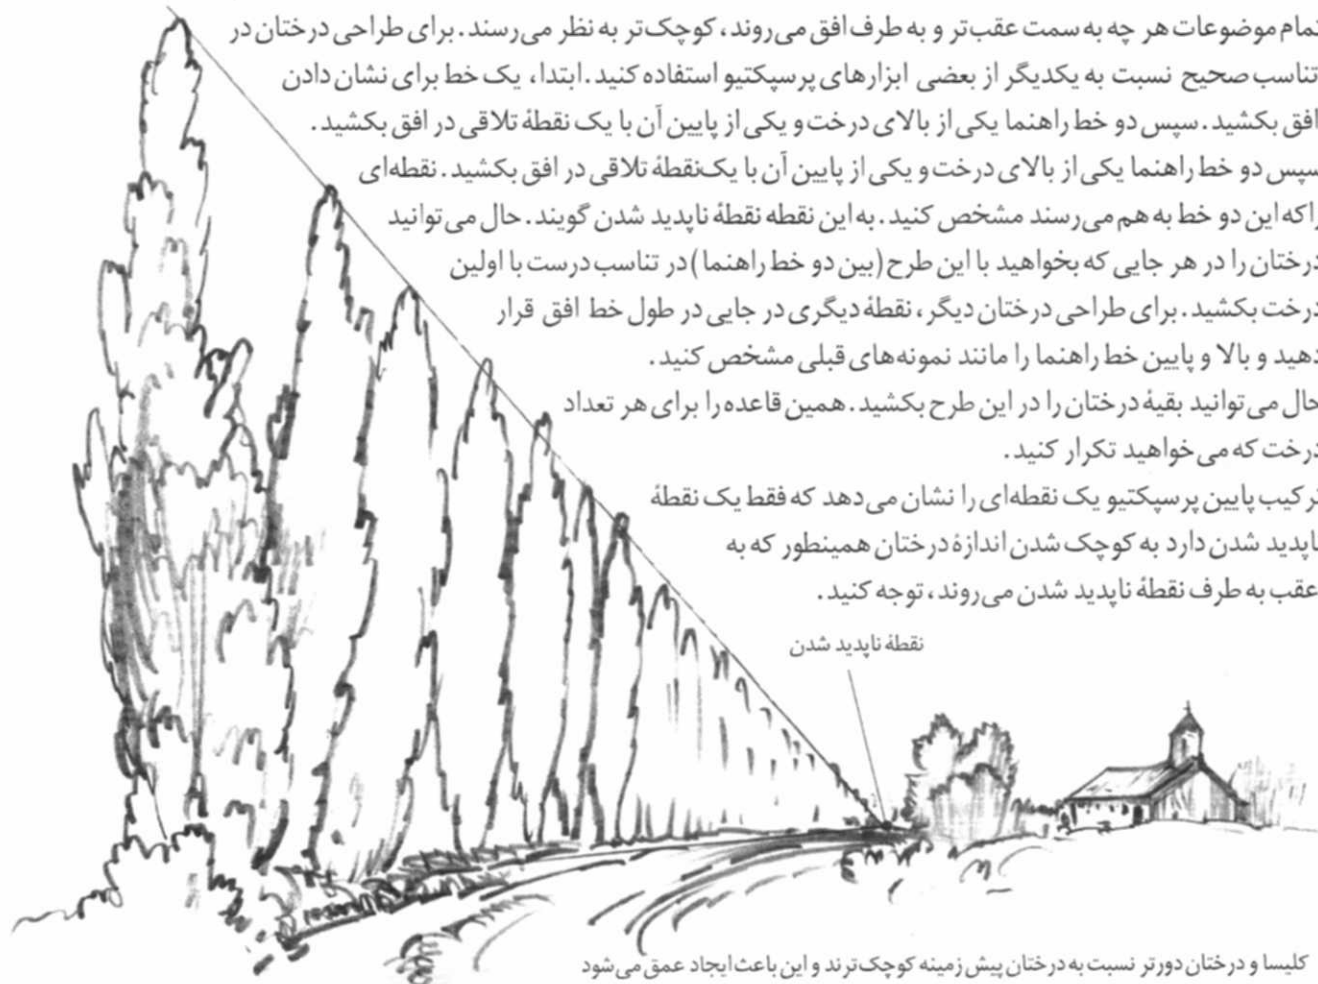 تمام موضوعات هر چه به سمت عقب‌تر و به طرف افق می‌روند، کوچک‌تر به نظر می‌رسند. برای طراحی درختان در
تناسب صحیح نسبت به یکدیگر از بعضی ابزارهای پرسپکتیو استفاده کنید. ابتدا، یک خط برای نشان دادن
افق بکشید. سپس دو خط راهنما یکی از بالای درخت و یکی از پایین آن با یک نقطهٔ تلاقی در افق بکشید.
سپس دو خط راهنما یکی از بالای درخت و یکی از پایین آن با یک‌نقطهٔ تلاقی در افق بکشید. نقطه‌ای
را که این دو خط به هم می‌رسند مشخص کنید. به این نقطه نقطهٔ ناپدید شدن گویند. حال می‌توانید
درختان را در هر جایی که بخواهید با این طرح (بین دو خط راهنما) در تناسب درست با اولین
درخت بکشید. برای طراحی درختان دیگر، نقطهٔ دیگری در جایی در طول خط افق قرار
دهید و بالا و پایین خط راهنما را مانند نمونه‌های قبلی مشخص کنید.
حال می‌توانید بقیهٔ درختان را در این طرح بکشید. همین قاعده را برای هر تعداد
درخت که می‌خواهید تکرار کنید.
ترکیب پایین پرسپکتیو یک نقطه‌ای را نشان می‌دهد که فقط یک نقطهٔ
ناپدید شدن دارد به کوچک شدن اندازهٔ درختان همینطور که به
عقب به طرف نقطهٔ ناپدید شدن می‌روند، توجه کنید.
نقطهٔ ناپدید شدن
کلیسا و درختان دورتر نسبت به درختان پیش زمینه کوچک‌ترند و این باعث ایجاد عمق می‌شود